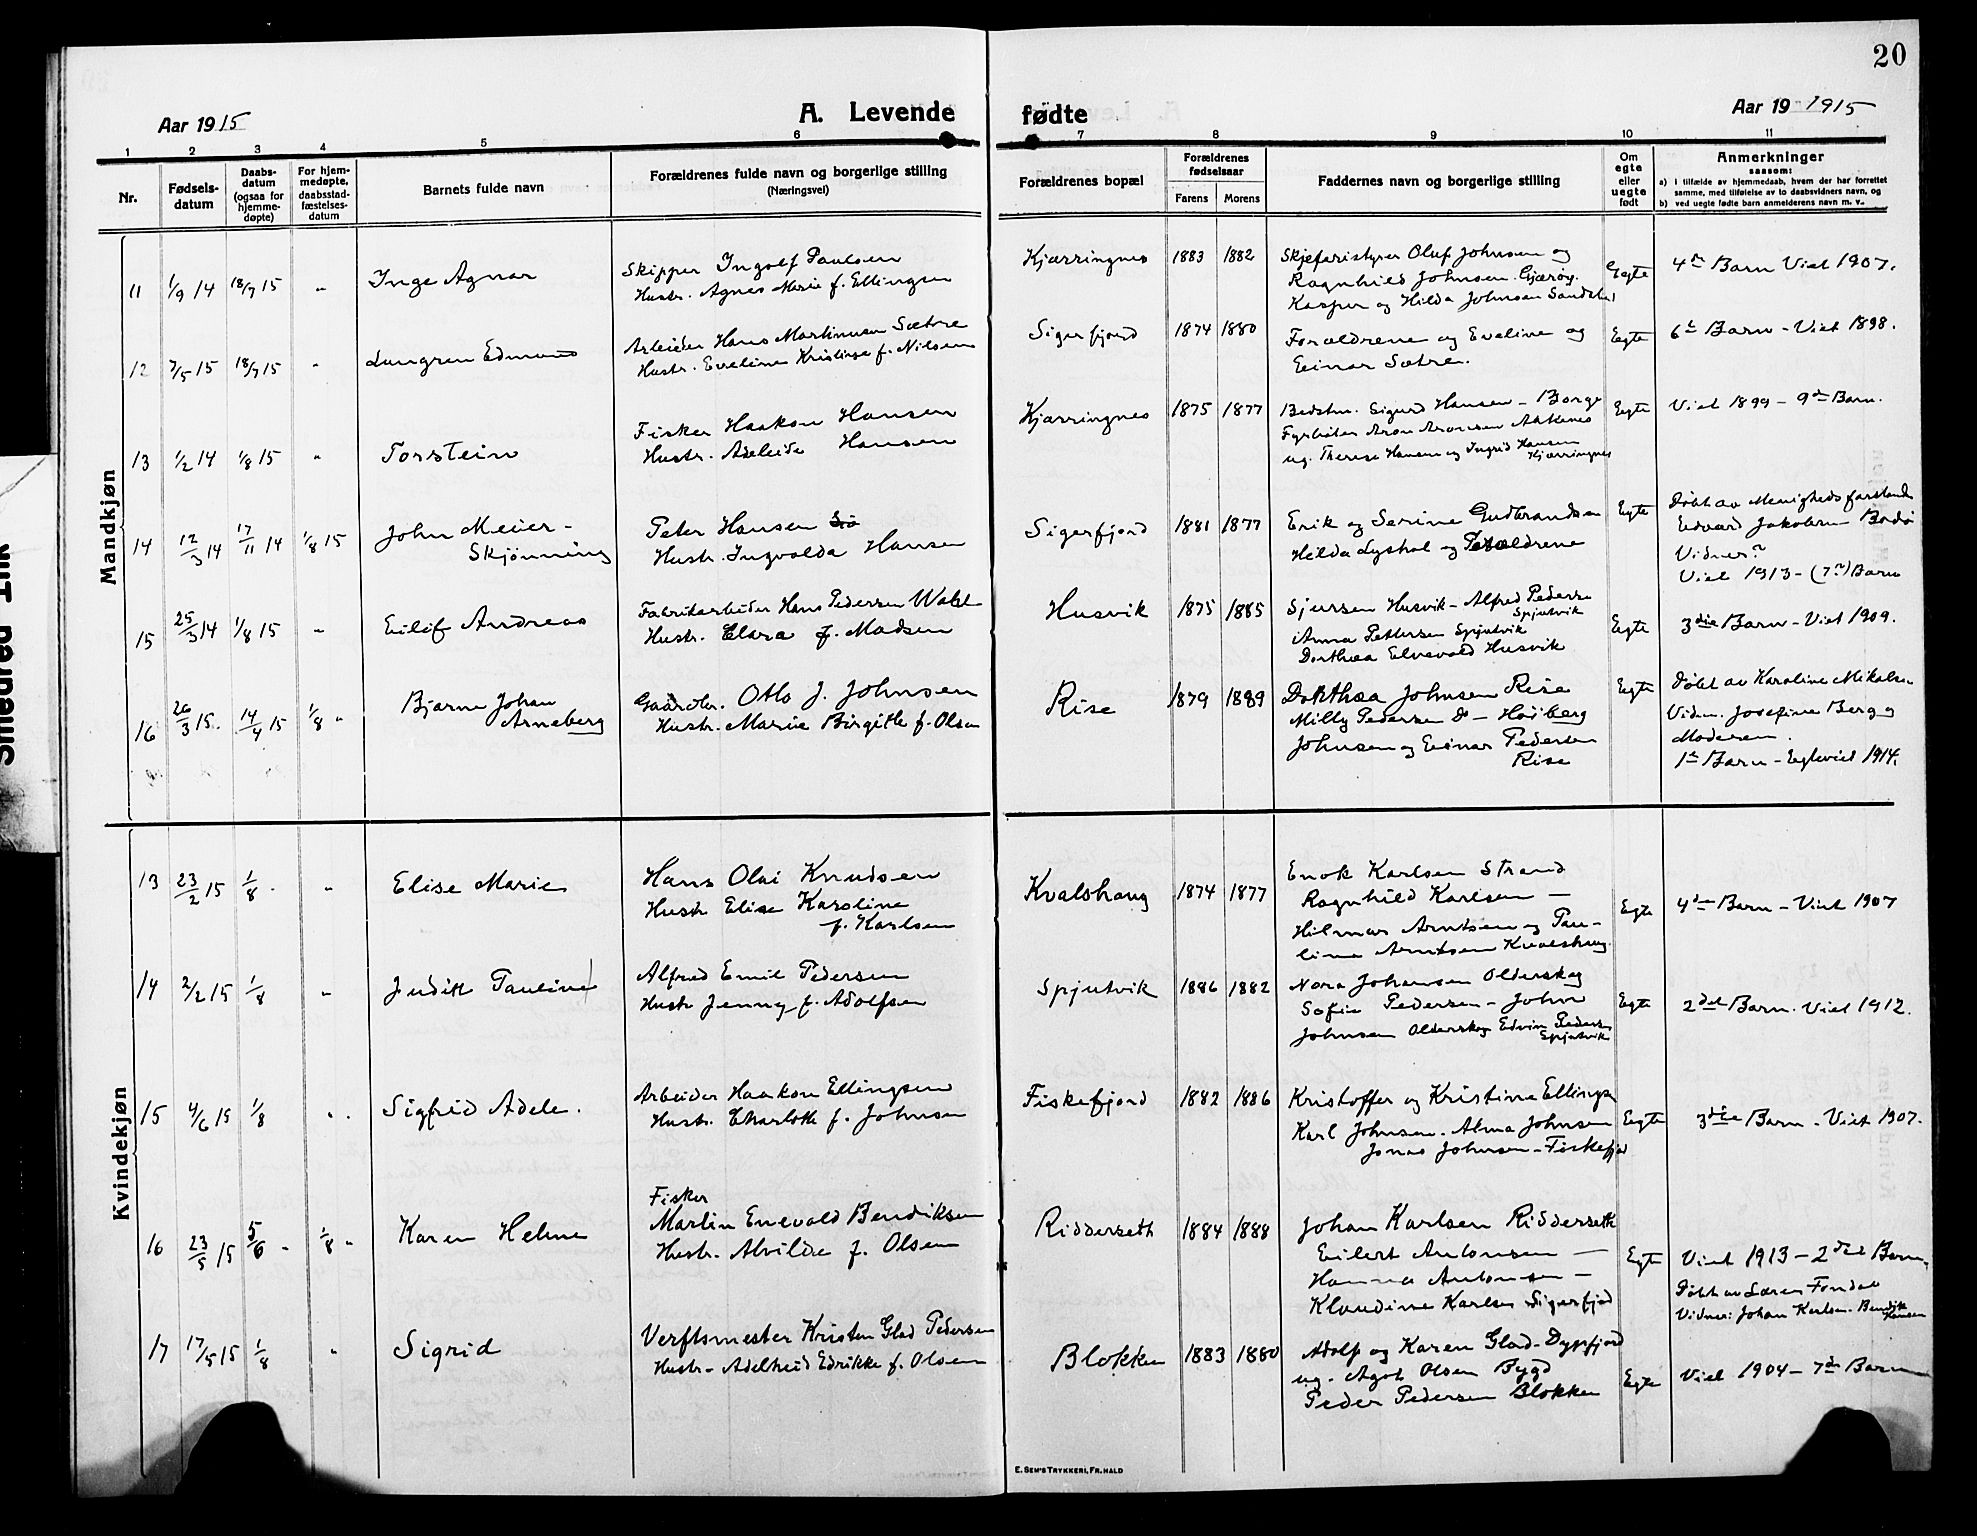 20
Aar 1915
A. Levende
fødte
Aar 19 1915
1 2 3 4 5 6 7 8 9 10 11
Nr.
Fødsels-
datum
Daabs-
datum
(ogsaa for
hjemme-
døpte)
For hjem-
medøpte,
daabsstad-
fæstelses-
datum
Barnets fulde navn
Forældrenes fulde navn og borgerlige stilling
(Næringsvei)
Forældrenes bopæl
Forældrenes
fødselsaar
Farens Morens
Faddernes navn og borgerlige stilling
Om
egte
eller
uegte
født
Anmerkninger
saasom:
a) i tilfælde av hjemmedaab, hvem der har forrettet
samme, med tilføielse av to daabsvidners navn, og
b) ved uegte fødte barn anmelderens navn m. v.
Mandkjøn
11 1/9 14 18/7 15 " Inge Agnar
Skipper Ingolf Paulsen
Hustr. Agnes Marie f. Ellingsen
Kjærringnes 1883 1882
Oluf Johnsen og
Ragnhild Johnsen
Kasper og Hilda Johnsen
Egte
4de Barn Viet 1907.
12 7/5 15 18/7 15 " Lungren Edmund
Arbeider Hans Martinusen Sætre
Hustr. Eveline Kristine f. Nilsen
Sigerfjord 1874 1880
Forældrene og Eveline og
Einar Sætre.
Egte
6te Barn - Viet 1898.
13 1/2 14 1/8 15 " Torstein
Fisker Haakon Hansen
Hustr. Adeleide Hansen
Kjærringnes 1875 1877
Sigurd Hansen - Borge
Aron Aronsen
ug. Therese Hansen og Ingrid Hansen
Kjærringnes
Egte
Viet 1899 - 9de Barn.
14 12/3 14 17/11 14 1/8 15 John Meier -
Skjønning
Peter Hansen
Hustr. Ingvalda Hansen
Sigerfjord 1881 1877
Erik og Serine Gudbrandsen
Hilda Lyshol og Forældrene
Egte
Døbt av Menigheds forstander
Edvard Jakobsen Bodø
Vidner?
Viet 1913 - (7de) Barn
15 25/3 14 1/8 15 " Eilif Andreas
Fabrikarbeider Hans Pedersen
Hustr. Clara f. Madsen
Husvik 1875 1885
Sjursen Husvik - Alfred Pedersen
Spjutvik
Anna Pettersen Spjutvik
Dorthea Elvevold Husvik
Egte
3die Barn - Viet 1909.
16 26/3 15. 14/4 15 1/8 " Bjarne Johan
Arneberg
Gaardbr. Otto J. Johnsen
Hustr. Marie Birgitte f. Olsen
Rise 1879 1889
Dorthea Johnsen Rise
Milly Pedersen Do - Høiberg
Johnsen og Einar Pedersen
Rise
Egte
Døbt av Karoline Mikals.
Vidn. Josefine Berg og
Moderen.
1te Barn - Egteviet 1914.
Kvindekjøn
13 23/2 15 1/8 . " Elise Marie
Hans Olai Knudsen
Hustr Elise Karoline
f. Karlsen
Kvalshaug 1874 1877
Enok Karlsen Strand
Ragnhild Karlsen —
Hilmar Arntsen og Pau-
line Arntsen Kvalshaug.
Egte
4de Barn - Viet 1907
14 2/2 15 1/8 " Judith Pauline
Alfred Emil Pedersen
Hustr Jenny f. Adolfsen
Spjutvik 1886 1882
Nora Johansen Olderskog
Sofie Pedersen - John
Johnsen Olderskog Edvin Pedersen
Spjutvik
Egte
2det Barn. Viet 1912.
15 4/6 15 1/8 " . Sigfrid Adele.
Arbeider Haakon Ellingsen
Hustr. Charlotte f. Johnsen
Fiskefjord 1882 1886
Kristoffer og Kristine Ellingsen
Karl Johnsen. Alma Johnsen
Jonas Johnsen - Fiskefjord
Egte
3die Barn - Viet 1907.
16 23/5 15 5/6 " 1/8 " Karen Helene
Fisker
Martin Enevold Bendiksen
Hustr. Alvilde f. Olsen
Ridderseth 1884 1888
Johan Karlsen Ridderseth
Eilert Antonsen —
Hanna Antonsen —
Klaudine Karlsen Sigerfjord
Egte
Viet 1913 - 2det Barn.
Døbt av Lærer Fondal
Vidner: Johan Karlsen. Bendik
Hansen
17 17/5 15 1/8 " Sigrid
Verftsmester Kristen Glad Pedersen
Hustr. Adelheid Edrikke f. Olsen
Blokken 1883 1880
Adolf og Karen Glad - Dypfjord
ug. Agot Olsen Bygd
Peder Pedersen Blokken
Egte
Viet 1904 - 7de Barn
E. SEM'S TRYKKERI, FR.HALD